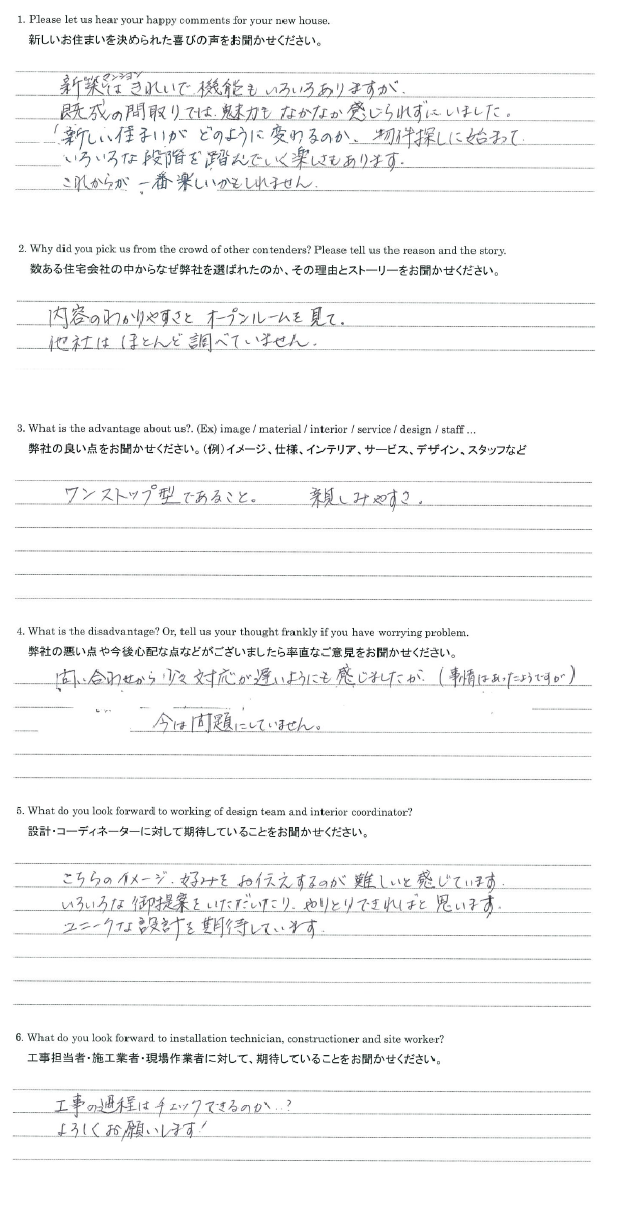 1. Please let us hear your happy comments for your new house.
新しいお住まいを決められた喜びの声をお聞かせください。
マンション
新築はきれいで機能もいろいろありますが、
既成の間取りでは魅力もなかなか感じられずにいました。
新しい住まいがどのように変わるのか、物件探しに始まって
いろいろな段階を踏んでいく楽しさもあります。
これからが一番楽しいかもしれません。
2. Why did you pick us from the crowd of other contenders? Please tell us the reason and the story.
数ある住宅会社の中からなぜ弊社を選ばれたのか、その理由とストーリーをお聞かせください。
内容のわかりやすさと オープンルームを見て。
他社は ほとんど調べていません。
3. What is the advantage about us?. (Ex) image / material / interior / service / design / staff ...
弊社の良い点をお聞かせください。(例)イメージ、仕様、インテリア、サービス、デザイン、スタッフなど
ワンストップ型であること。 親しみやすさ。
4. What is the disadvantage? Or, tell us your thought frankly if you have worrying problem.
弊社の悪い点や今後心配な点などがございましたら率直なご意見をお聞かせください。
問い合わせから少々対応が遅いようにも感じましたが、(事情はあったようですが)
今は問題にしていません。
5. What do you look forward to working of design team and interior coordinator?
設計・コーディネーターに対して期待していることをお聞かせください。
こちらのイメージ、好みをお伝えするのが難しいと感じています。
いろいろな御提案をいただいたり、やりとりできればと思います。
ユニークな設計を期待しています。
6. What do you look forward to installation technician, constructioner and site worker?
工事担当者・施工業者・現場作業者に対して、期待していることをお聞かせください。
工事の過程はチェックできるのか..?
よろしくお願いします!